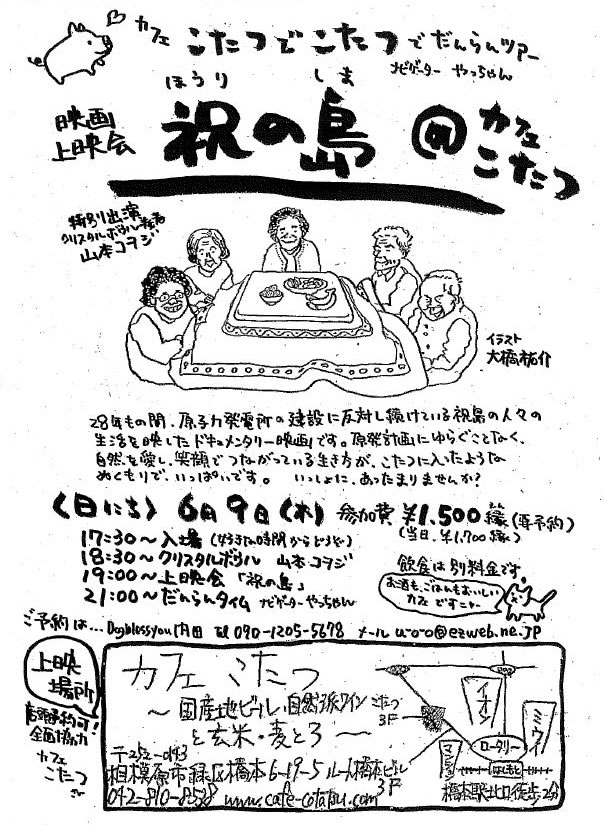 カフェ こたつで こたつ でだんらんツアー
ナビゲーター やっちゃん
ほうり しま
映画
上映会
祝の島 @ カフェ
こたつ
特別出演
クリスタルボウル奏者
山本コヲジ
イラスト
大橋祐介
28年もの間、原子力発電所の建設に反対し続けている祝島の人々の
生活を映したドキュメンタリー映画です。原発計画にゆらぐことなく、
自然を愛し、笑顔でつながっている生き方が、こたつに入ったような
ぬくもりで、いっぱいです。 いっしょに、あったまりませんか?
〈日にち〉 6月9日(木) 参加費 ¥1,500 (要予約)
(当日、¥1,700)
17:30〜入場 (好きな時間からどうぞ)
18:30〜クリスタルボウル 山本コヲジ
19:00〜上映会「祝の島」
21:00〜だんらんタイム ナビゲーターやっちゃん
飲食は別料金です
お酒も、ごはんもおいしい
カフェですニャー
ご予約は… Dogblossyou内田 Tel 090-1205-5678 メール u-o-o@ezweb.ne.jp
上映
場所
店頭予約可!
企画協力
カフェ
こたつ
カフェ こたつ
〜国産地ビール・自然派ワイン
と玄米・麦とろ〜
〒252-0143
相模原市緑区橋本6-19-5 ルート橋本ビル
3F
042-810-8538 www.cafe-cotatsu.com
こたつ
3F
イオン
ミウィ
ロータリー
はしもと
橋本駅北口徒歩2分